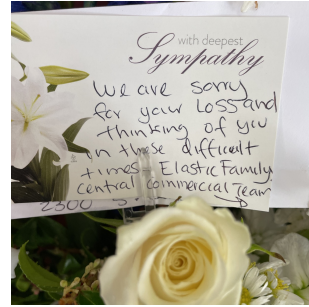 with deepest
Sympathy
We are sorry
for your Loss and
thinking of you
in these difficult
times - Elastic Family
Central Commercial Team
2300